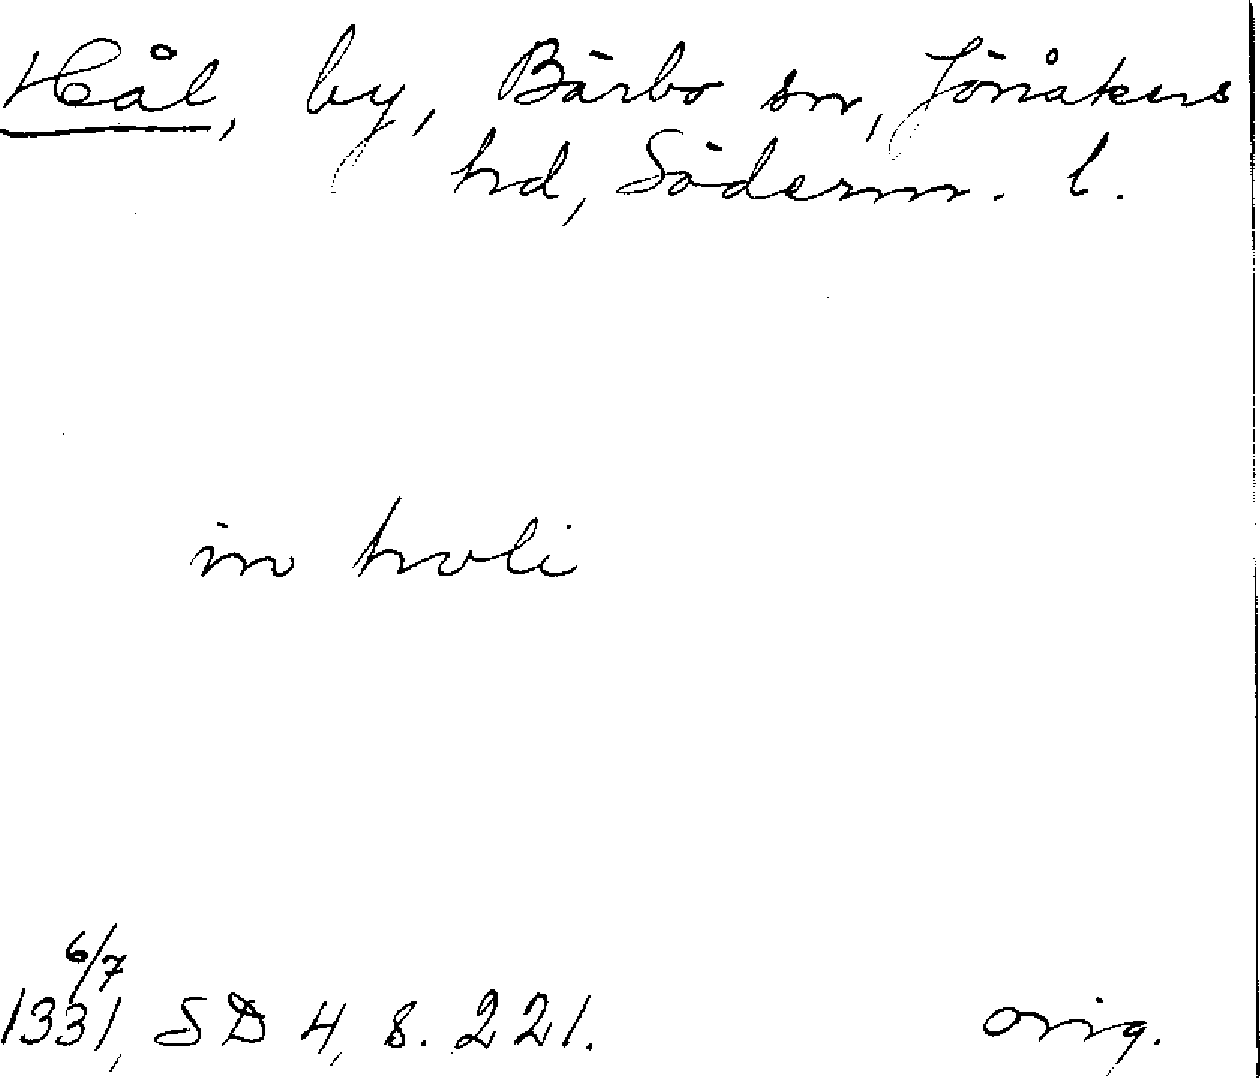 Hål, by, Bärbo sn, Jönåkers
hd, Söderm. l.
in holi
6/7
1331, SD 4, s. 221. orig.